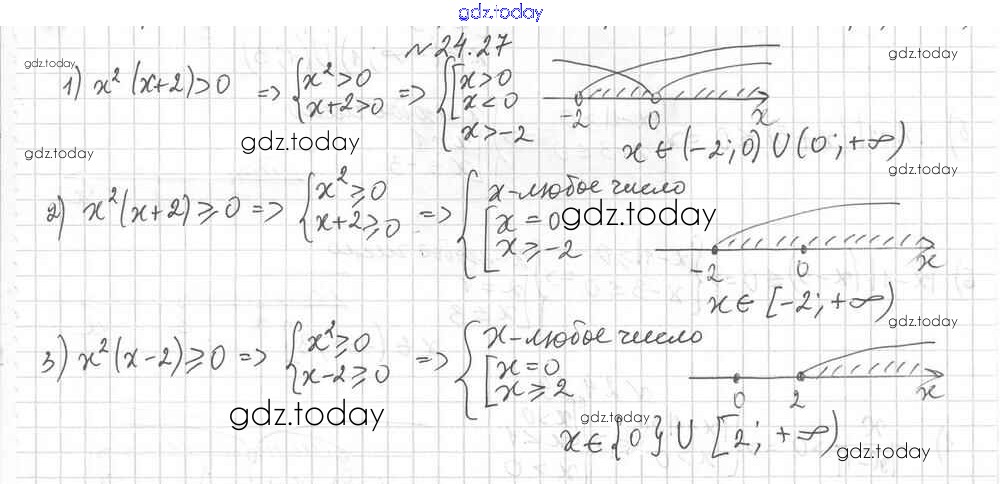 gdz.today
№ 24.27
gdz.today
gdz.today
1) x² (x+2)>0 => {x²>0 x+2>0 => {[x>0 x<0 x>-2
-2 0 x
gdz.today
gdz.today
x ∈ (-2; 0) ∪ (0; +∞)
gdz.today
2) x²(x+2)≥0 => {x²≥0 x+2≥0 => {x-любое число [x=0 x≥-2
gdz.today
-2 0 x
x ∈ [-2; +∞)
gdz.today
3) x²(x-2)≥0 => {x²≥0 x-2≥0 => {x-любое число [x=0 x≥2
0 2 x
gdz.today
gdz.today
x ∈ {0} ∪ [2; +∞)
gdz.today